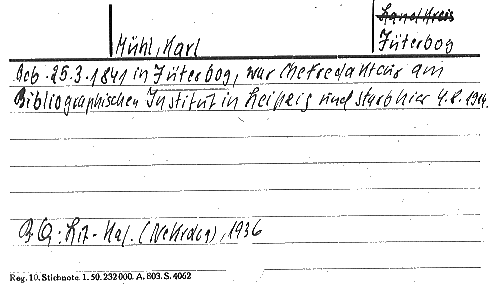 Landkreis
Mühl, Karl Jüterbog
Geb. 25.3.1841 in Jüterbog, war Chefredakteur am
Bibliographischen Institut in Leipzig und starb hier 4.8.1914.
BQ: Lit-Kal. (Nekrolog), 1936
Reg. 10. Stichnote. 1. 50. 232000. A. 803. S. 4062